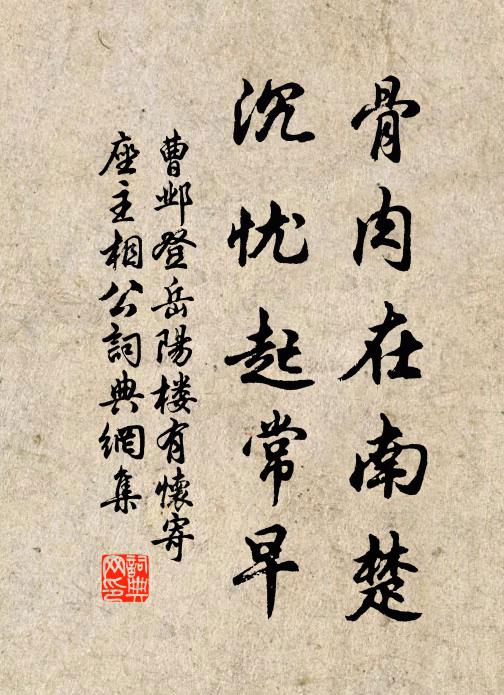 骨肉在南楚
沉忧起常早
曹邺登岳陽楼有懷寄
座主相公詞典網集
詞典网印